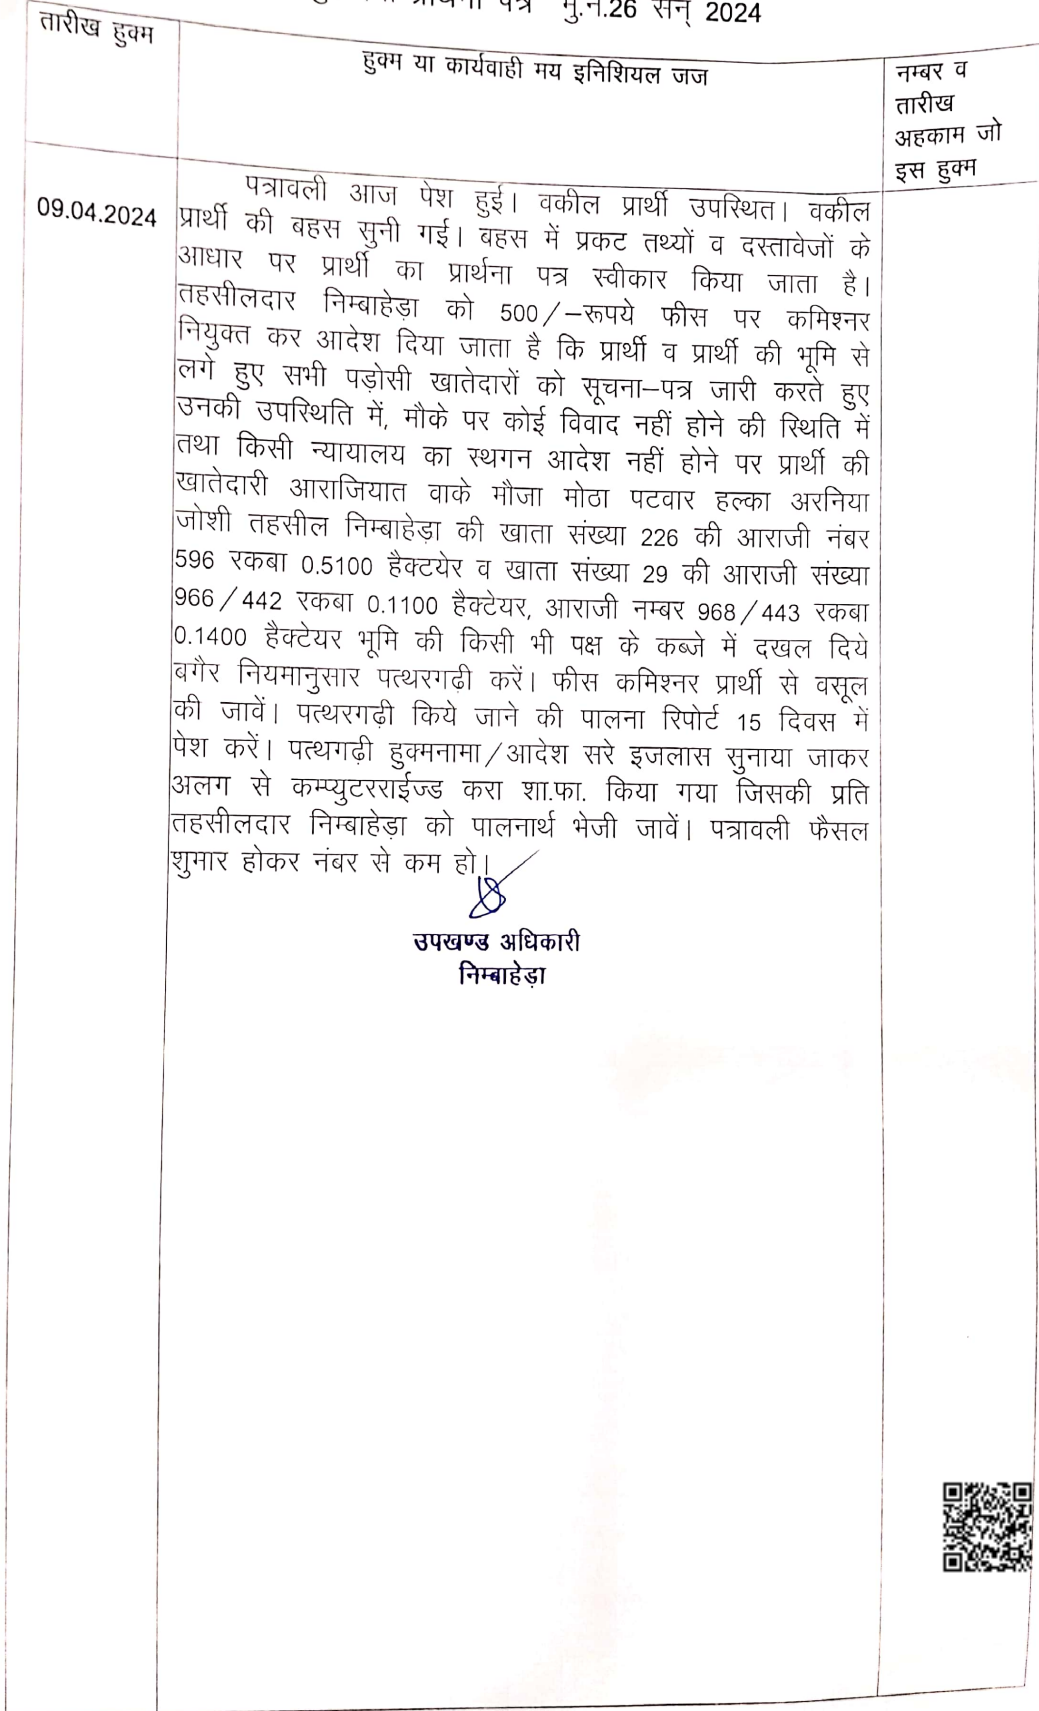 प्रार्थना पत्र मु.न.26 सन् 2024
तारीख हुक्म
हुक्म या कार्यवाही मय इनिशियल जज
नम्बर व
तारीख
अहकाम जो
इस हुक्म
09.04.2024
पत्रावली आज पेश हुई। वकील प्रार्थी उपस्थित। वकील
प्रार्थी की बहस सुनी गई। बहस में प्रकट तथ्यों व दस्तावेजों के
आधार पर प्रार्थी का प्रार्थना पत्र स्वीकार किया जाता है।
तहसीलदार निम्बाहेड़ा को 500/–रूपये फीस पर कमिश्नर
नियुक्त कर आदेश दिया जाता है कि प्रार्थी व प्रार्थी की भूमि से
लगे हुए सभी पड़ोसी खातेदारों को सूचना–पत्र जारी करते हुए
उनकी उपस्थिति में, मौके पर कोई विवाद नहीं होने की स्थिति में
तथा किसी न्यायालय का स्थगन आदेश नहीं होने पर प्रार्थी की
खातेदारी आराजियात वाके मौजा मोठा पटवार हल्का अरनिया
जोशी तहसील निम्बाहेड़ा की खाता संख्या 226 की आराजी नंबर
596 रकबा 0.5100 हैक्टयेर व खाता संख्या 29 की आराजी संख्या
966/442 रकबा 0.1100 हैक्टेयर, आराजी नम्बर 968/443 रकबा
0.1400 हैक्टेयर भूमि की किसी भी पक्ष के कब्जे में दखल दिये
बगैर नियमानुसार पत्थरगढ़ी करें। फीस कमिश्नर प्रार्थी से वसूल
की जावें। पत्थरगढ़ी किये जाने की पालना रिपोर्ट 15 दिवस में
पेश करें। पत्थगढ़ी हुक्मनामा/आदेश सरे इजलास सुनाया जाकर
अलग से कम्प्युटरराईज्ड करा शा.फा. किया गया जिसकी प्रति
तहसीलदार निम्बाहेड़ा को पालनार्थ भेजी जावें। पत्रावली फैसल
शुमार होकर नंबर से कम हो।
उपखण्ड अधिकारी
निम्बाहेड़ा